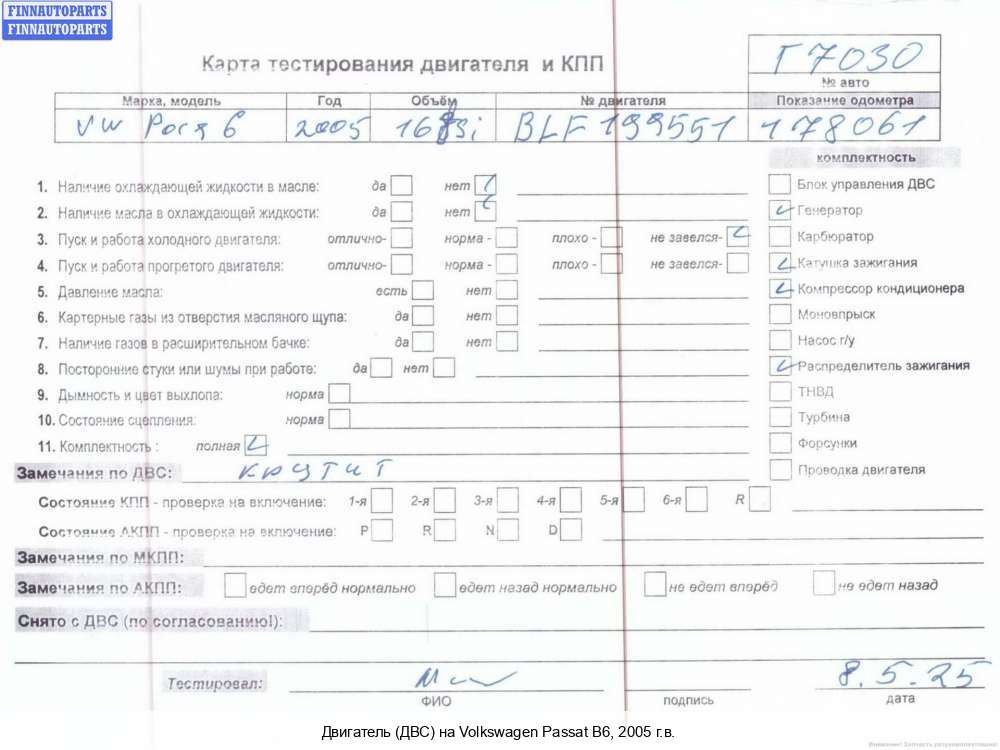 FINNAUTOPARTS
FINNAUTOPARTS
Карта тестирования двигателя и КПП
Г7030
№ авто
Марка, модель Год Объём № двигателя Показание одометра
VW 6 2005 BLF 199551 178061
комплектность
1. Наличие охлаждающей жидкости в масле: да нет Блок управления ДВС
2. Наличие масла в охлаждающей жидкости: да нет Генератор
3. Пуск и работа холодного двигателя: отлично- норма - плохо - не завелся- Карбюратор
4. Пуск и работа прогретого двигателя: отлично- норма - плохо - не завелся- Катушка зажигания
5. Давление масла: есть нет Компрессор кондиционера
6. Картерные газы из отверстия масляного щупа: да нет Моновпрыск
7. Наличие газов в расширительном бачке: да нет Насос г/у
8. Посторонние стуки или шумы при работе: да нет Распределитель зажигания
9. Дымность и цвет выхлопа: норма ТНВД
10. Состояние сцепления: норма Турбина
11. Комплектность : полная Форсунки
Замечания по ДВС: крутит Проводка двигателя
Состояние КПП - проверка на включение: 1-я 2-я 3-я 4-я 5-я 6-я R
Состояние АКПП - проверка на включение: P R N D
Замечания по МКПП:
Замечания по АКПП: едет вперёд нормально едет назад нормально не едет вперёд не едет назад
Снято с ДВС (по согласованию!):
Тестировал: 8.5.25
ФИО подпись дата
Двигатель (ДВС) на Volkswagen Passat B6, 2005 г.в.